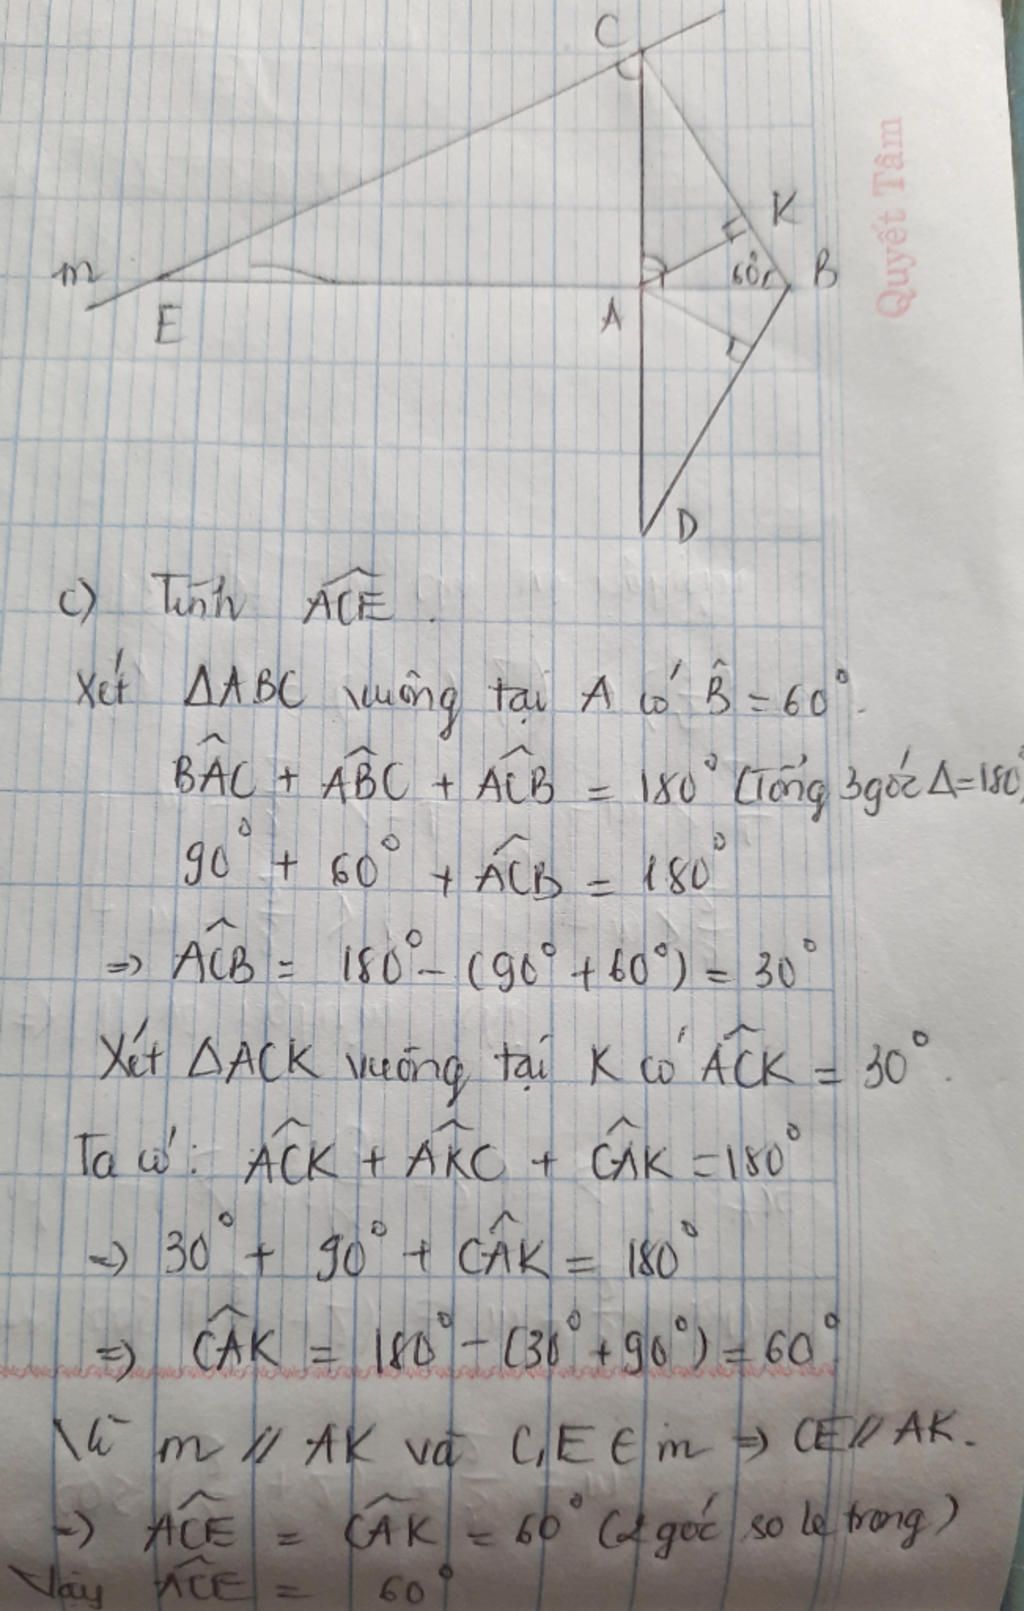 C
K
m
60°
B
E
A
D
Quyết Tâm
c) Tính ACE.
Xét ΔABC vuông tại A có B̂ = 60°.
BAC + ABC + ACB = 180° (Tổng 3 góc Δ = 180°)
90° + 60° + ACB = 180°
=> ACB = 180° - (90° + 60°) = 30°
Xét ΔACK vuông tại K có ACK = 30°.
Ta có: ACK + AKC + CAK = 180°
=> 30° + 90° + CAK = 180°
=> CAK = 180° - (30° + 90°) = 60°
Vì m // AK và C, E ∈ m => CE // AK.
=> ACE = CAK = 60° (2 góc so le trong)
Vậy ACE = 60°